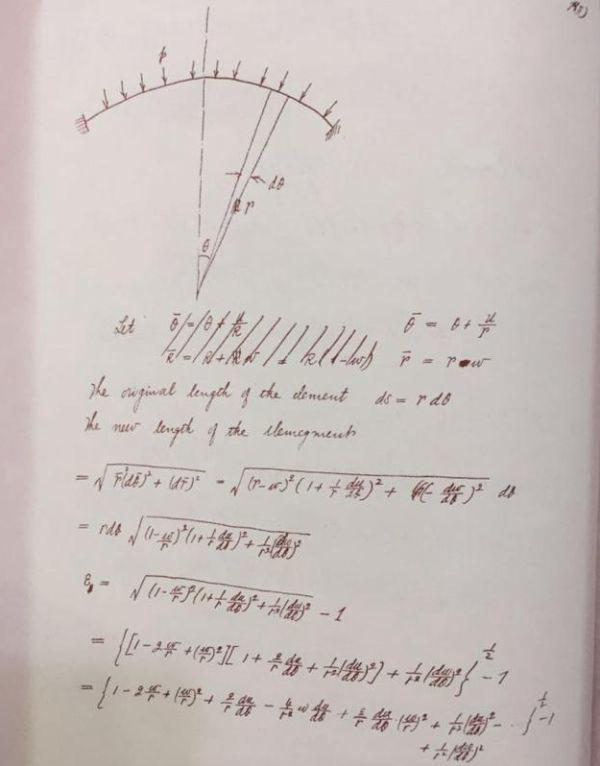 p
dθ
r
θ
Let θ̄ = θ + u/r
r̄ = r - w
The original length of the element ds = r dθ
The new length of the
= √(r̄²(dθ̄)² + (dr̄)²) = √((r-w)²(1 + 1/r du/dθ)² + (-dw/dθ)²) dθ
= rdθ √((1-w/r)²(1+1/r du/dθ)² + 1/r²(dw/dθ)²)
= √((1-w/r)²(1+1/r du/dθ)² + 1/r²(dw/dθ)²) - 1
= {[1-2w/r+(w/r)²][1+2/r du/dθ+1/r²(du/dθ)²]+1/r²(dw/dθ)²}^½ - 1
= {1-2w/r+(w/r)²+2/r du/dθ-4/r² w du/dθ+2/r du/dθ·(w/r)²+1/r²(du/dθ)²-...
+1/r²(dw/dθ)²}^½ - 1